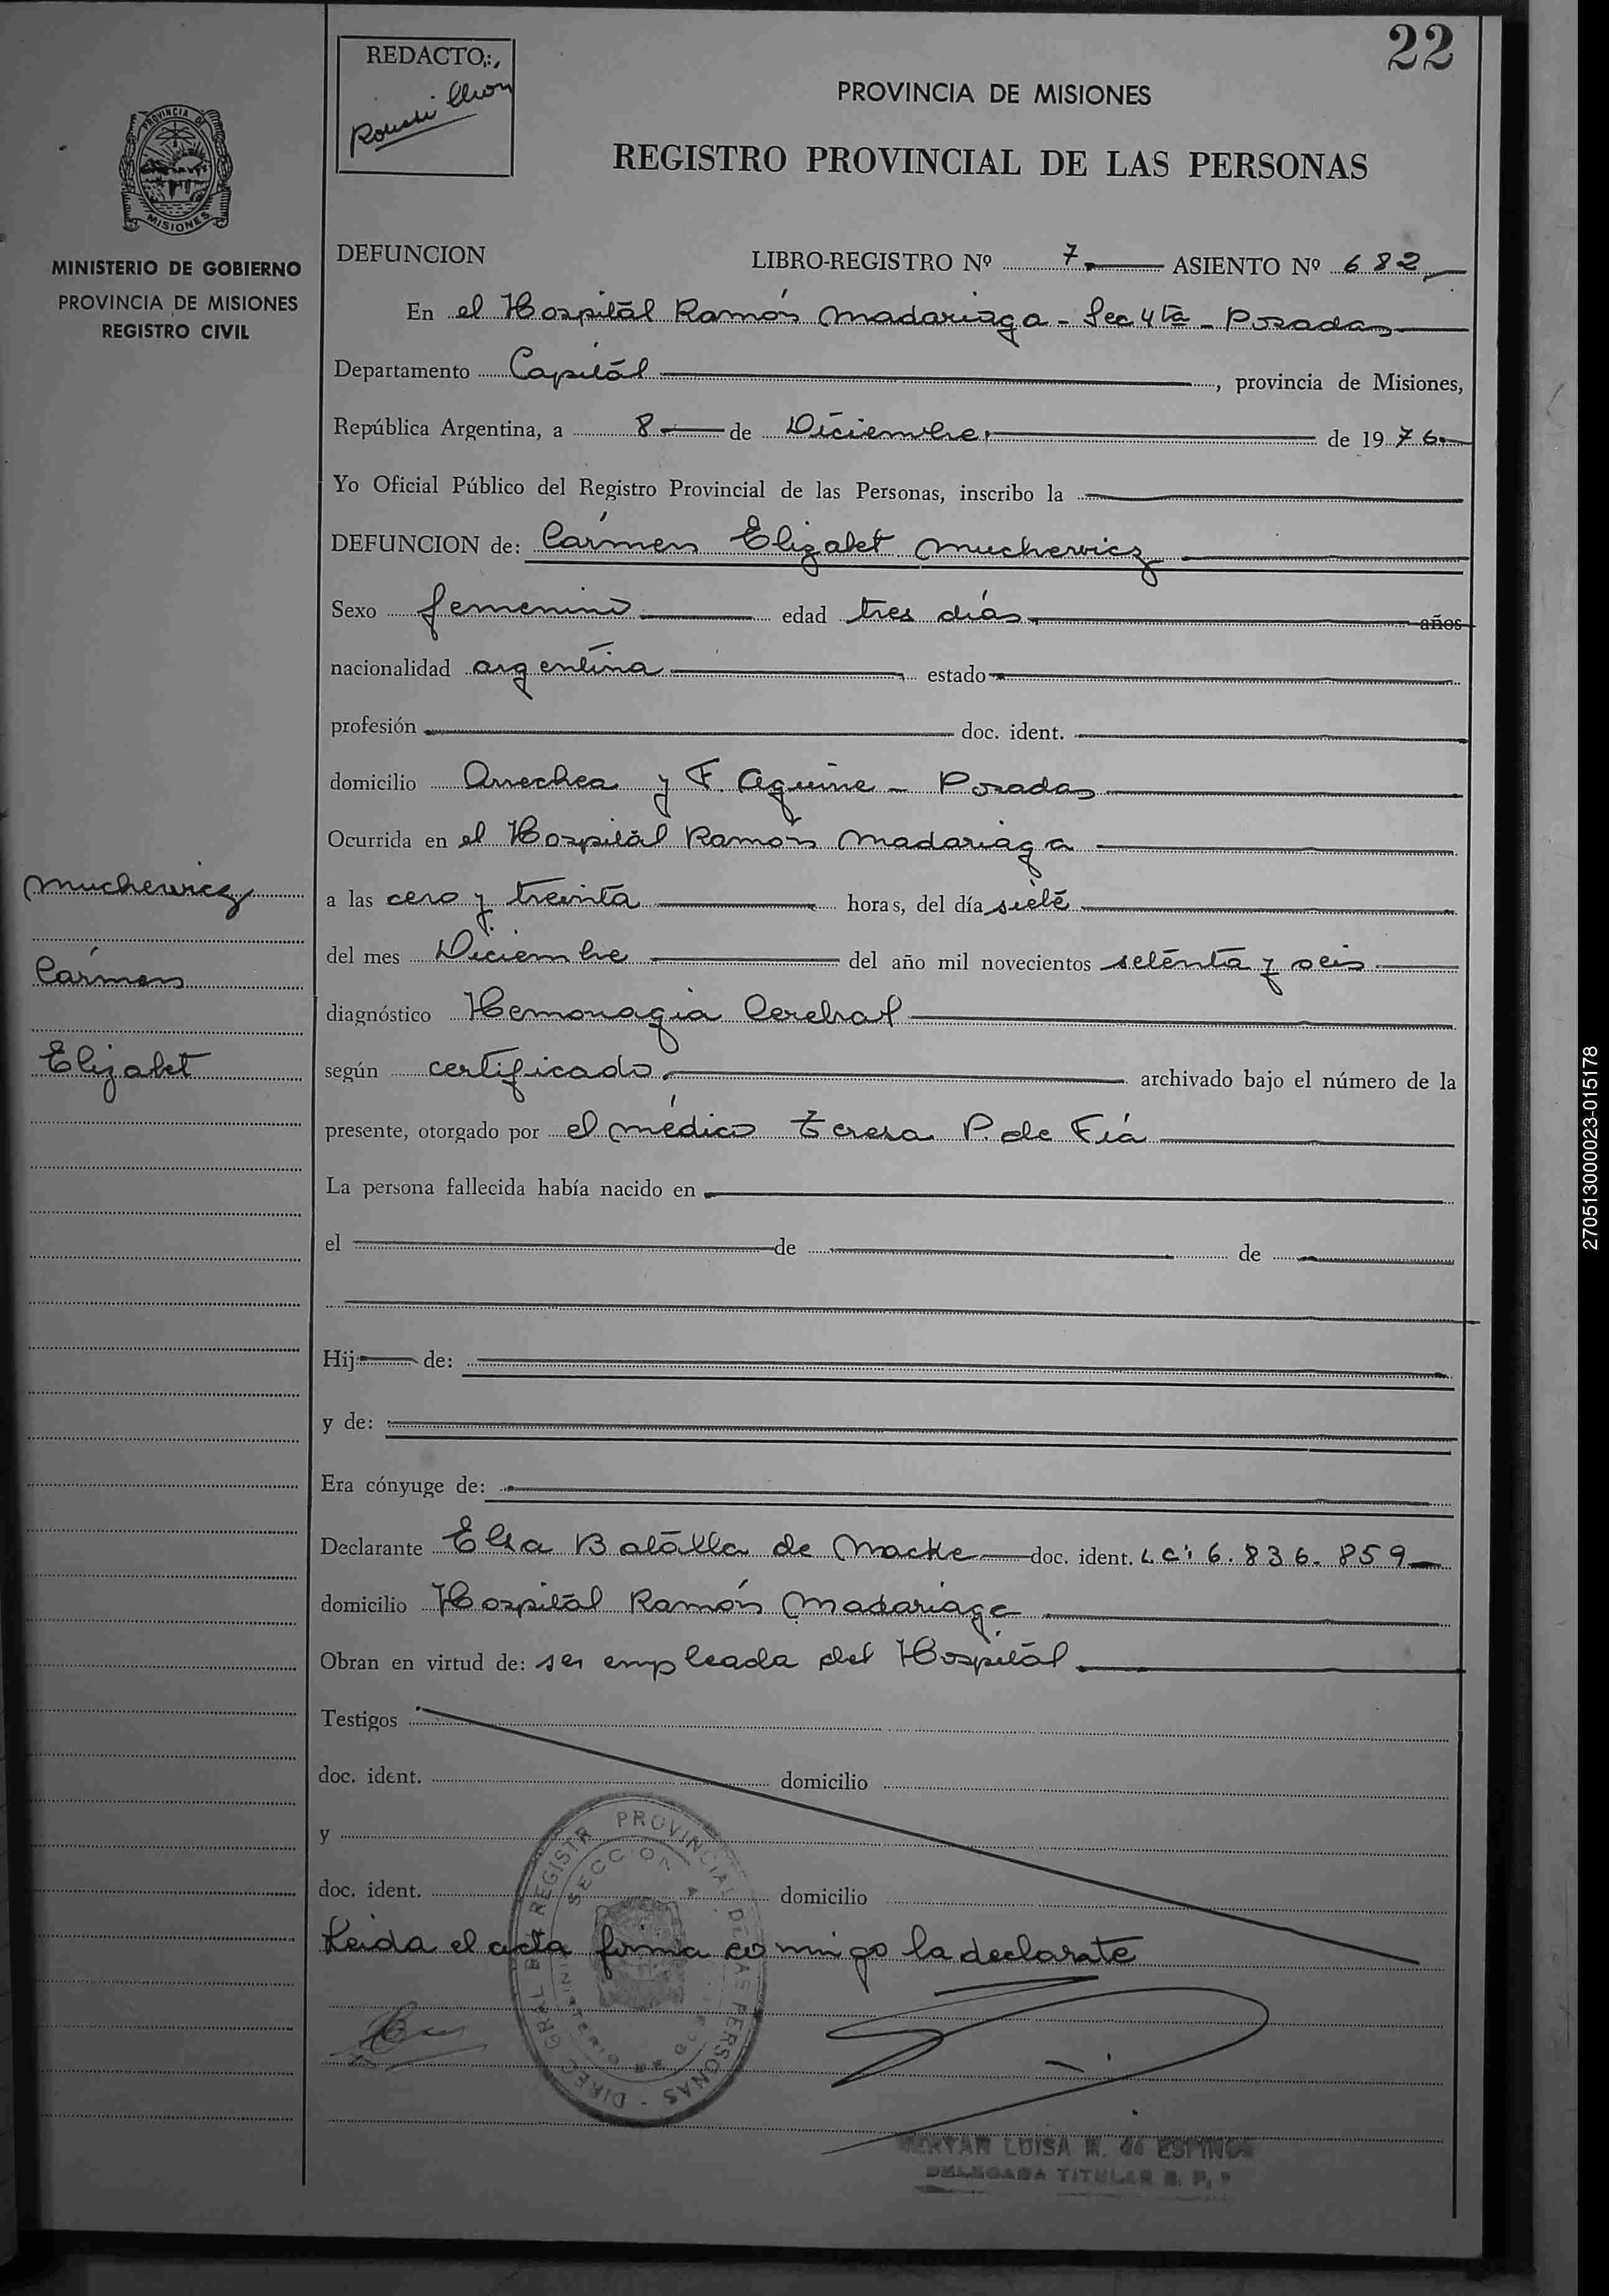 22
REDACTO:
PROVINCIA DE MISIONES
REGISTRO PROVINCIAL DE LAS PERSONAS
PROVINCIA DE
MISIONES
MINISTERIO DE GOBIERNO
PROVINCIA DE MISIONES
REGISTRO CIVIL
DEFUNCION LIBRO-REGISTRO Nº 7 ASIENTO Nº 682
En el Hospital Ramón Madariaga - Sec 4ta - Posadas
Departamento Capital, provincia de Misiones,
República Argentina, a 8 de Diciembre de 1976
Yo Oficial Público del Registro Provincial de las Personas, inscribo la
DEFUNCION de: Cármen Elizabet Muchewicz
Sexo femenino edad tres días años
nacionalidad argentina estado
profesión doc. ident.
domicilio Arrechea y F. Aguirre - Posadas
Ocurrida en el Hospital Ramón Madariaga
a las cero y treinta horas, del día siete
del mes Diciembre del año mil novecientos setenta y seis
diagnóstico Hemorragia Cerebral
según certificado archivado bajo el número de la
presente, otorgado por el médico teresa P. de Fiá
La persona fallecida había nacido en
el de de
Hij de:
y de:
Era cónyuge de:
Declarante Elsa Batalla de Macke doc. ident. L.C: 6.836.859
domicilio Hospital Ramón Madariaga
Obran en virtud de: ser empleada del Hospital
Testigos
doc. ident. domicilio
y
doc. ident. domicilio
Leida el acta firma comingo la declarate
Muchewicz
Cármen
Elizabet
DIREC GRAL REGISTR PROVINCIAL DE LAS PERSONAS
SECCION
LUISA M. de ESPINOS
DELEGADA TITULAR
27051300​0023-015178